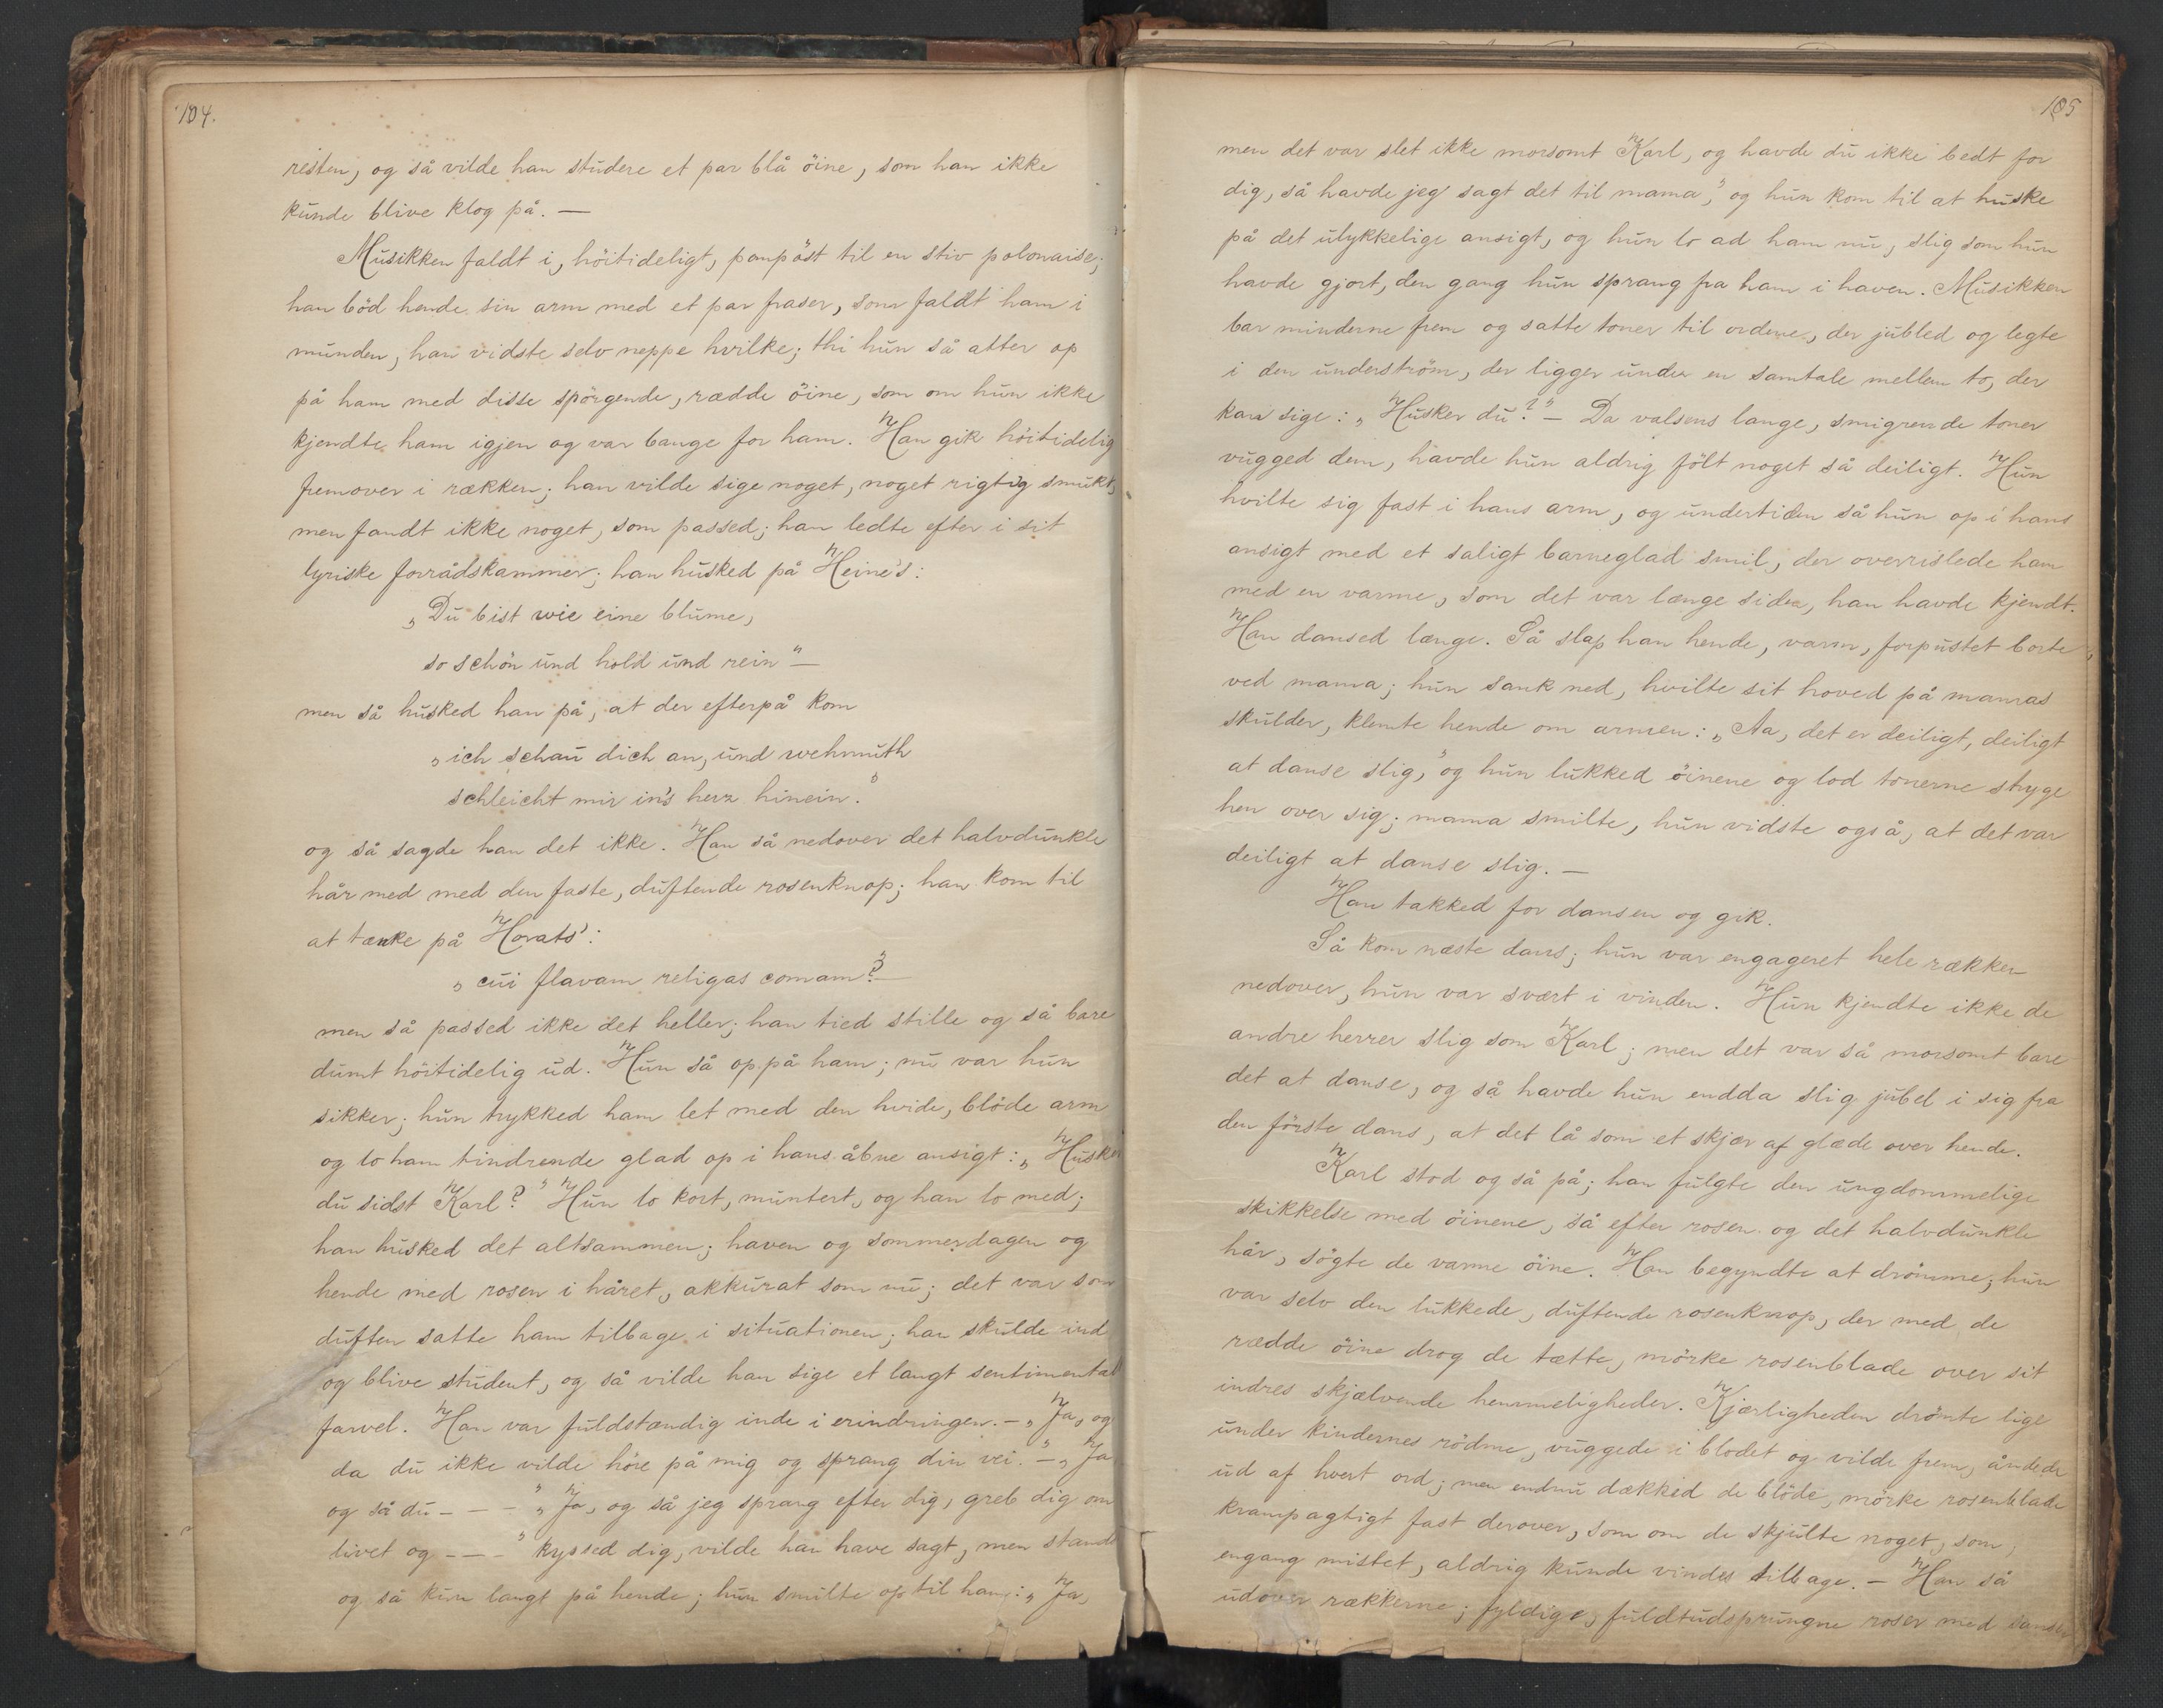 104.
resten, og så vilde han studere et par blå öine, som han ikke
kunde blive klog på. —
Musikken faldt i, höitideligt, pompöst til en stiv polonaise;
han böd hende sin arm med et par fraser, som faldt ham i
munden, han vidste selv neppe hvilke; thi hun så atter op
på ham med disse spörgende, rædde öine, som om hun ikke
kjendte ham igjen og var bange for ham. Han gik höitidelig
fremover i rækken; han vilde sige noget, noget rigtig smukt,
men fandt ikke noget, som passed; han ledte efter i sit
lyriske forrådskammer; han husked på Heine's:
„Du bist wie eine blume,
so schön und hold und rein" —
men så husked han på, at der efterpå kom
„ich schau dich an, und wehmuth
schleicht mir in's herz hinein."
og så sagde han det ikke. Han så nedover det halvdunkle
hår med med den faste, duftende rosenknop; han kom til
at tænke på Horats':
„cui flavam religas comam?" —
men så passed ikke det heller; han tied stille og så bare
dumt höitidelig ud. Hun så op på ham; nu var hun
sikker; hun trykked ham let med den hvide, blöde arm
og lo ham tindrende glad op i hans åbne ansigt: „Husker
du sidst Karl?" Hun lo kort, muntert, og han lo med;
han husked det altsammen; haven og sommerdagen og
hende med rosen i håret, akkurat som nu; det var som
duften satte ham tilbage i situationen; han skulde ind
og blive student, og så vilde han sige et langt sentimental
farvel. Han var fuldstændig inde i erindringen. — „Ja, og
da du ikke vilde höre på mig og sprang din vei." — „Ja
og så du — — — " „Ja, og så jeg sprang efter dig, greb dig om
livet og — — — " kyssed dig, vilde han have sagt, men stand
og så kun langt på hende; hun smilte op til ham: „Ja,
105
men det var slet ikke morsomt Karl, og havde du ikke bedt for
dig, så havde jeg sagt det til mama," og hun kom til at huske
på det ulykkelige ansigt, og hun lo ad ham nu, slig som hun
havde gjort, den gang hun sprang fra ham i haven. Musikken
bar minderne frem og satte toner til ordene, der jubled og legte
i den understrøm, der ligger under en samtale mellem to, der
kan sige: „Husker du?" — Da valsens lange, smigrende toner
vugged dem, havde hun aldrig fölt noget så deiligt. Hun
hvilte sig fast i hans arm, og undertiden så hun op i hans
ansigt med et saligt barneglad smil, der overrislede ham
med en varme, som det var længe siden, han havde kjendt.
Han dansed længe. Så slap han hende, varm, forpustet borte
ved mama; hun sank ned, hvilte sit hoved på mamas
skulder, klemte hende om armen: „Aa, det er deiligt, deiligt
at danse slig," og hun lukked öinene og lod tonerne stryge
hen over sig; mama smilte, hun vidste også, at det var
deiligt at danse slig. —
Han takked for dansen og gik.
Så kom næste dans; hun var engageret hele rækken
nedover, hun var svært i vinden. Hun kjendte ikke de
andre herrer slig som Karl; men det var så morsomt bare
det at danse, og så havde hun endda slig jubel i sig fra
den förste dans, at det lå som et skjær af glæde over hende.
Karl stod og så på; han fulgte den ungdommelige
skikkelse med öinene, så efter rosen og det halvdunkle
hår, sögte de varme öine. Han begyndte at drömme; hun
var selv den lukkede, duftende rosenknop, der med de
rædde öine drog de tætte, mörke rosenblade over sit
indres skjælvende hemmeligheder. Kjærligheden drömte lige
under kindernes rödme, vuggede i blodet og vilde frem, åndede
ud af hvert ord; men endnu dækked de blöde, mörke rosenblade
krampagtigt fast derover, som om de skjulte noget, som,
engang mistet, aldrig kunde vindes tilbage. — Han så
udover rækkerne; fyldige, fuldtudsprungne roser med